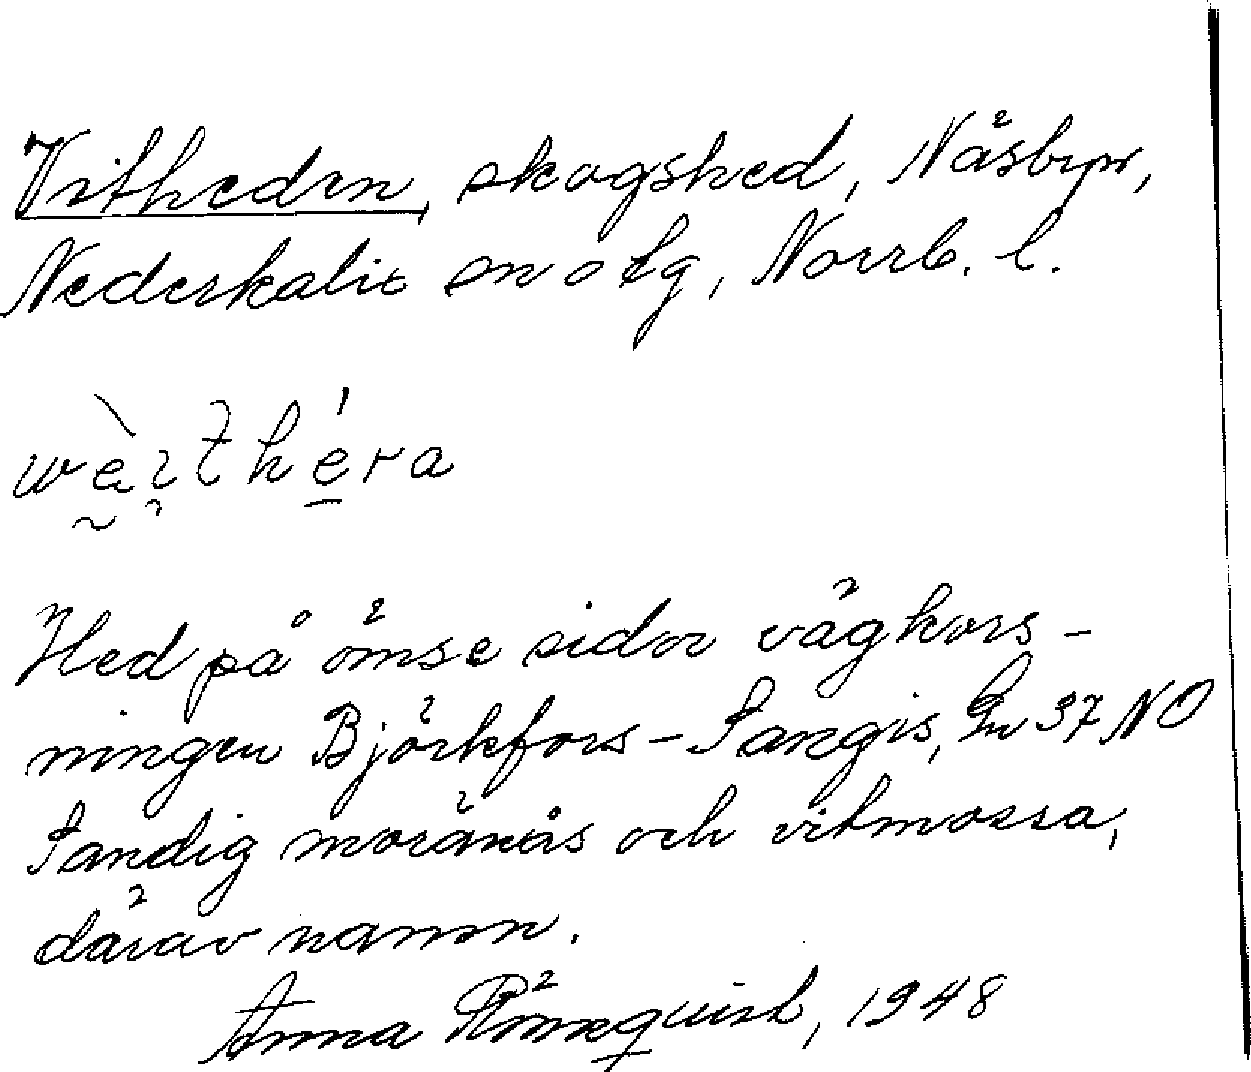 Vitheden, skogshed, Näsbyn,
Nederkalix sn o tg, Norrb. l.
Hed på ömse sidor vägkors-
ningen Björkfors-Sangis, Gn 37 NO
Sandig moränås och vitmossa,
därav namn.
Anna Rönnquist, 1948